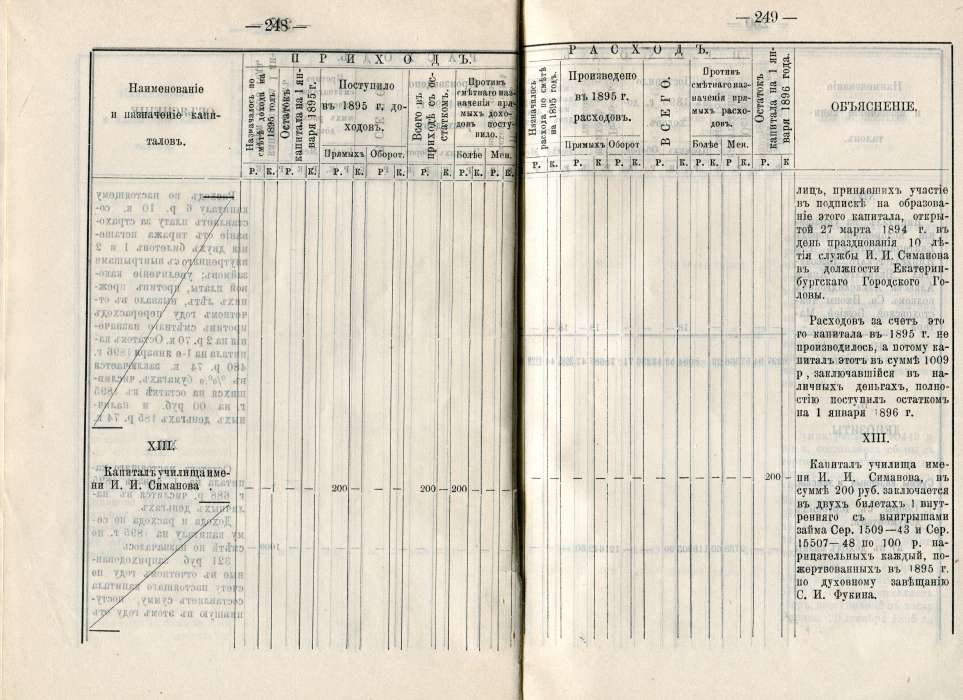 — 248 —
ПРИХОДЪ.
Наименованіе
и назначеніе капи-
таловъ.
Назначалось по
смѣтѣ дохода на
1895 годъ.
Остатокъ
капитала на 1 ян-
варя 1895 г.
Поступило
въ 1895 г. до-
ходовъ.
Прямыхъ
Оборот.
Всего въ
приходѣ съ ос-
статкомъ.
Противъ
смѣтнаго наз-
наченія пря-
мыхъ дохо-
довъ посту-
пило.
Болѣе
Мен.
Р. К. Р. К. Р. К. Р. К. Р. К. Р. К. Р. К.
XIII.
Капиталъ училища име-
ни И. И. Симанова . — — — — 200 — — — 200 — 200 — — —
— 249 —
РАСХОДЪ.
Назначалось
расхода по смѣтѣ
на 1895 годъ.
Произведено
въ 1895 г.
расходовъ.
Прямыхъ
Оборот
ВСЕГО.
Противъ
смѣтнаго наз-
наченія пря-
мыхъ расхо-
довъ.
Болѣе
Мен.
Остатокъ
капитала на 1 ян-
варя 1896 года.
ОБЪЯСНЕНІЕ,
Р. К. Р. К. Р. К. Р. К. Р. К. Р. К. Р. К
— — — — — — — — — — — — 200 —
лицъ, принявшихъ участіе
въ подпискѣ на образова-
ніе этого капитала, откры-
той 27 марта 1894 г. въ
день празднованія 10 лѣ-
тія службы И. И. Симанова
въ должности Екатерин-
бургскаго Городского Го-
ловы.
Расходовъ за счетъ это
го капитала въ 1895 г. не
производилось, а потому ка-
питалъ этотъ въ суммѣ 1009
р , заключавшійся въ на-
личныхъ деньгахъ, полно-
стію поступилъ остаткомъ
на 1 января 1896 г.
XIII.
Капиталъ училища име-
ни И. И. Симанова, въ
суммѣ 200 руб. заключается
въ двухъ билетахъ 1 внут-
ренняго съ выигрышами
займа Сер. 1509—43 и Сер.
15507—48 по 100 р. на-
рицательныхъ каждый, по-
жертвованныхъ въ 1895 г.
по духовному завѣщанію
С. И. Фукина.